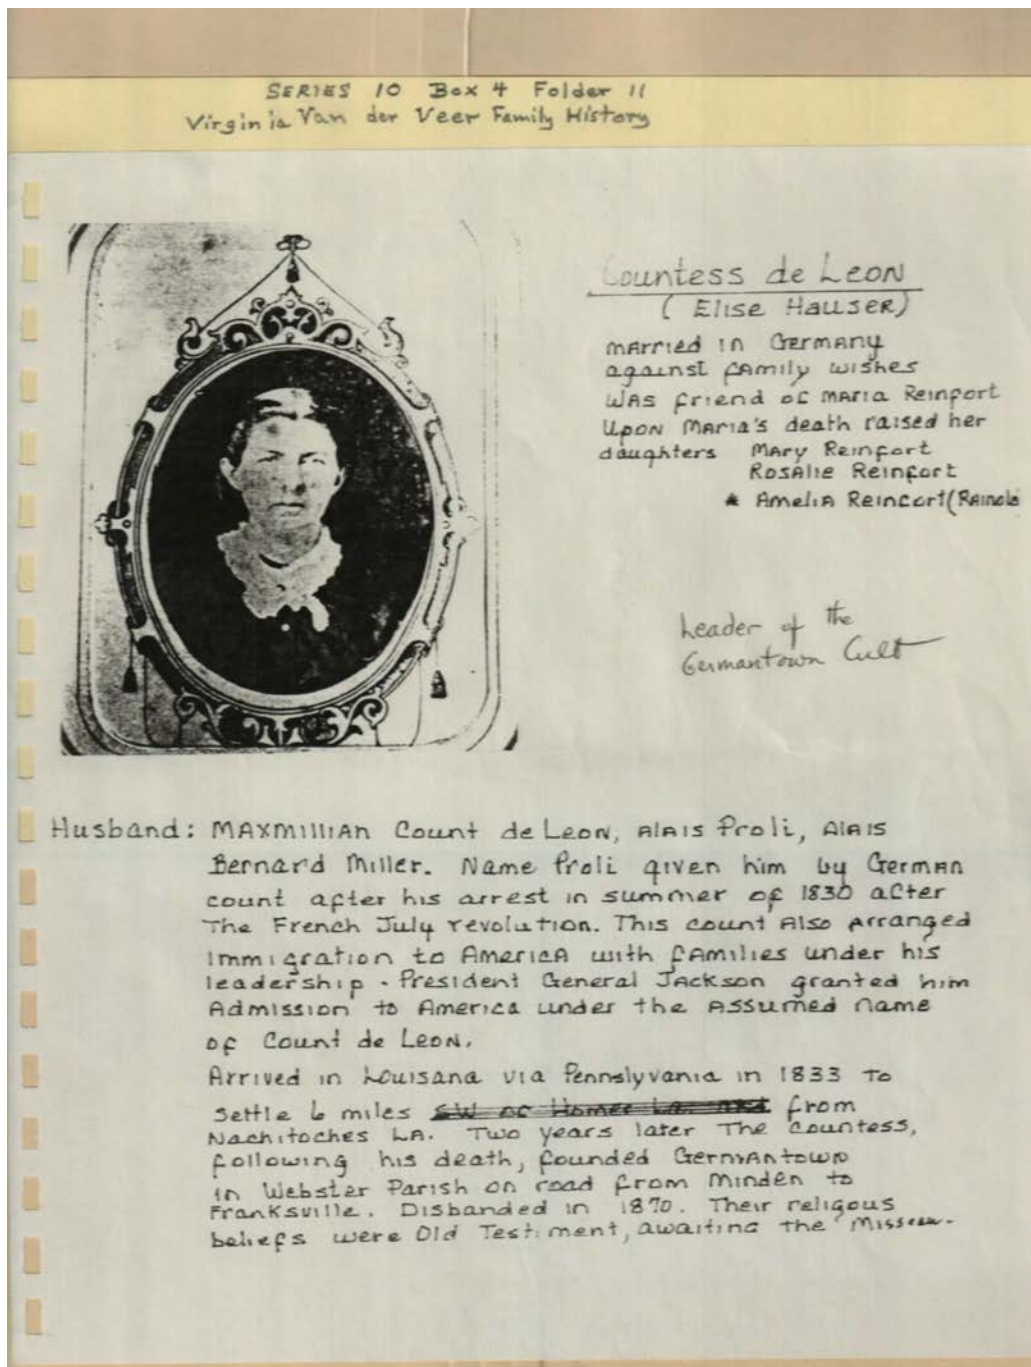 SERIES 10 Box 4 Folder 11
Virginia Van der Veer Family History
Countess de Leon
(Elise Hauser)
married in Germany
against family wishes
was friend of Maria Reinfort
Upon Maria's death raised her
daughters Mary Reinfort
Rosalie Reinfort
* Amelia Reinfort (
Leader of the
Germantown Cult
Husband: Maxmillian Count de Leon, Alais Proli, Alais
Bernard Miller. Name Proli given him by German
count after his arrest in summer of 1830 after
The French July revolution. This count Also Arranged
Immigration to America with families under his
leadership - President General Jackson granted him
Admission to America under the Assumed name
of Count de Leon.
Arrived in Louisana via Pennslyvania in 1833 to
Settle 6 miles SW of Homer La. and from
Nachitoches LA. Two years later The Countess,
following his death, founded Germantown
in Webster Parish on road from Minden to
Franksville. Disbanded in 1870. Their religous
beliefs were Old Testiment, awaiting the